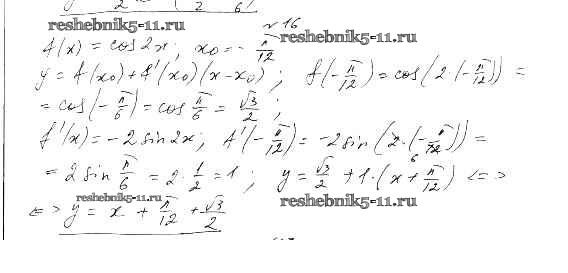 y 2 (2 6)
reshebnik5-11.ru
№ 16
reshebnik5-11.ru
f(x) = cos 2x; x₀ = - π/12
y = f(x₀) + f'(x₀)(x-x₀); f(-π/12) = cos(2·(-π/12)) =
= cos(-π/6) = cos π/6 = √3/2;
f'(x) = -2 sin 2x; f'(-π/12) = -2 sin(2·(-π/12)) =
6
= 2 sin π/6 = 2·1/2 = 1; y = √3/2 + 1·(x + π/12) <=>
reshebnik5-11.ru
reshebnik5-11.ru
<=> y = x + π/12 + √3/2